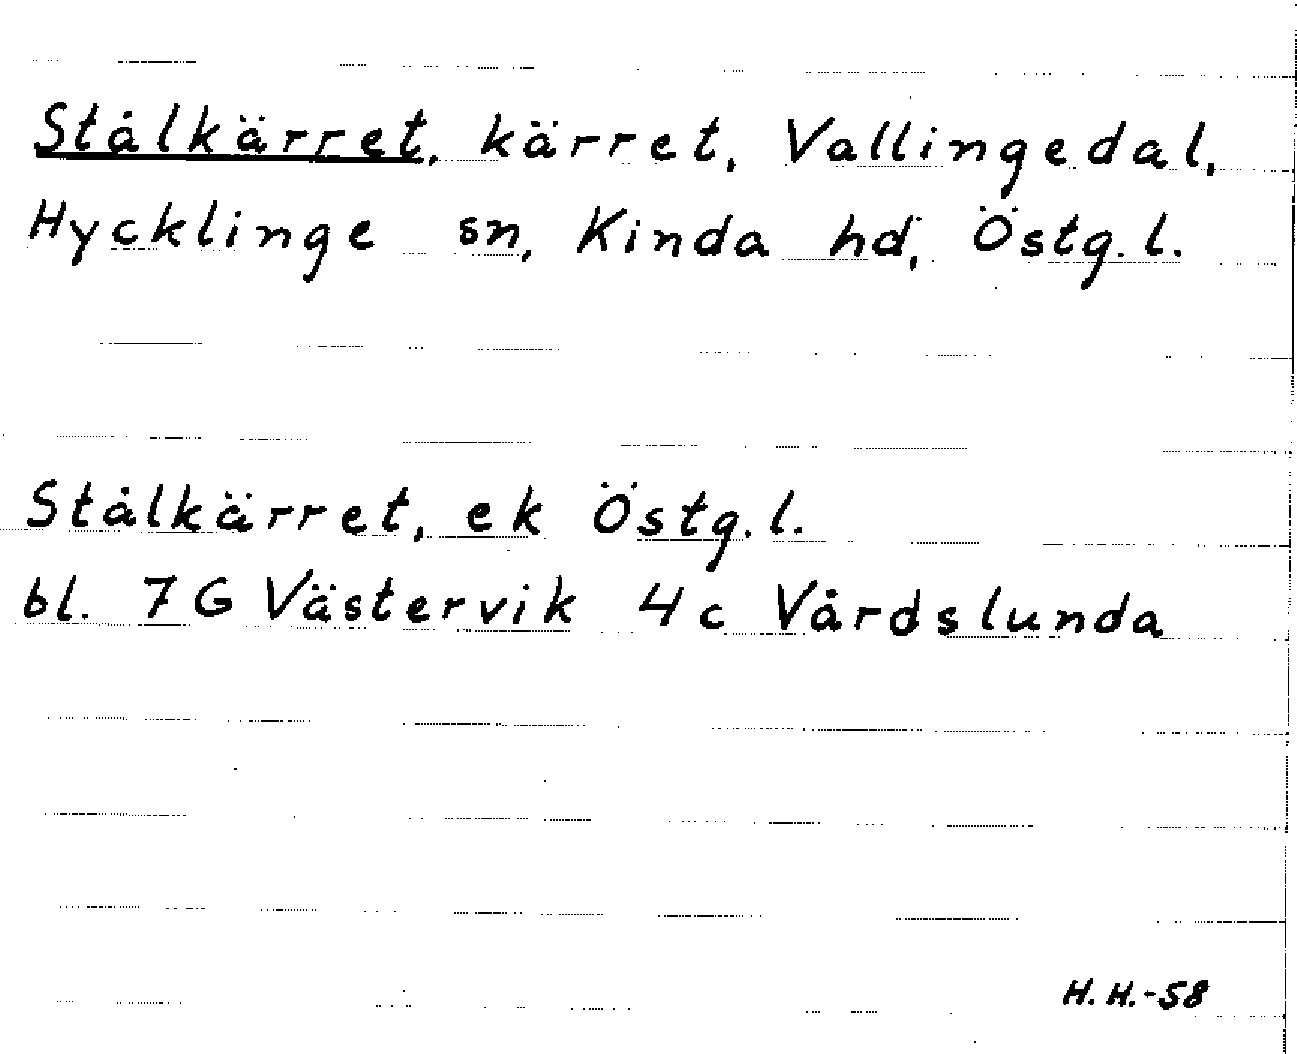 Stålkärret, kärret, Vallingedal,
Hycklinge sn, Kinda hd, Östg.l.
Stålkärret, ek Östg.l.
bl. 7G Västervik 4c Vårdslunda
H.H.-58